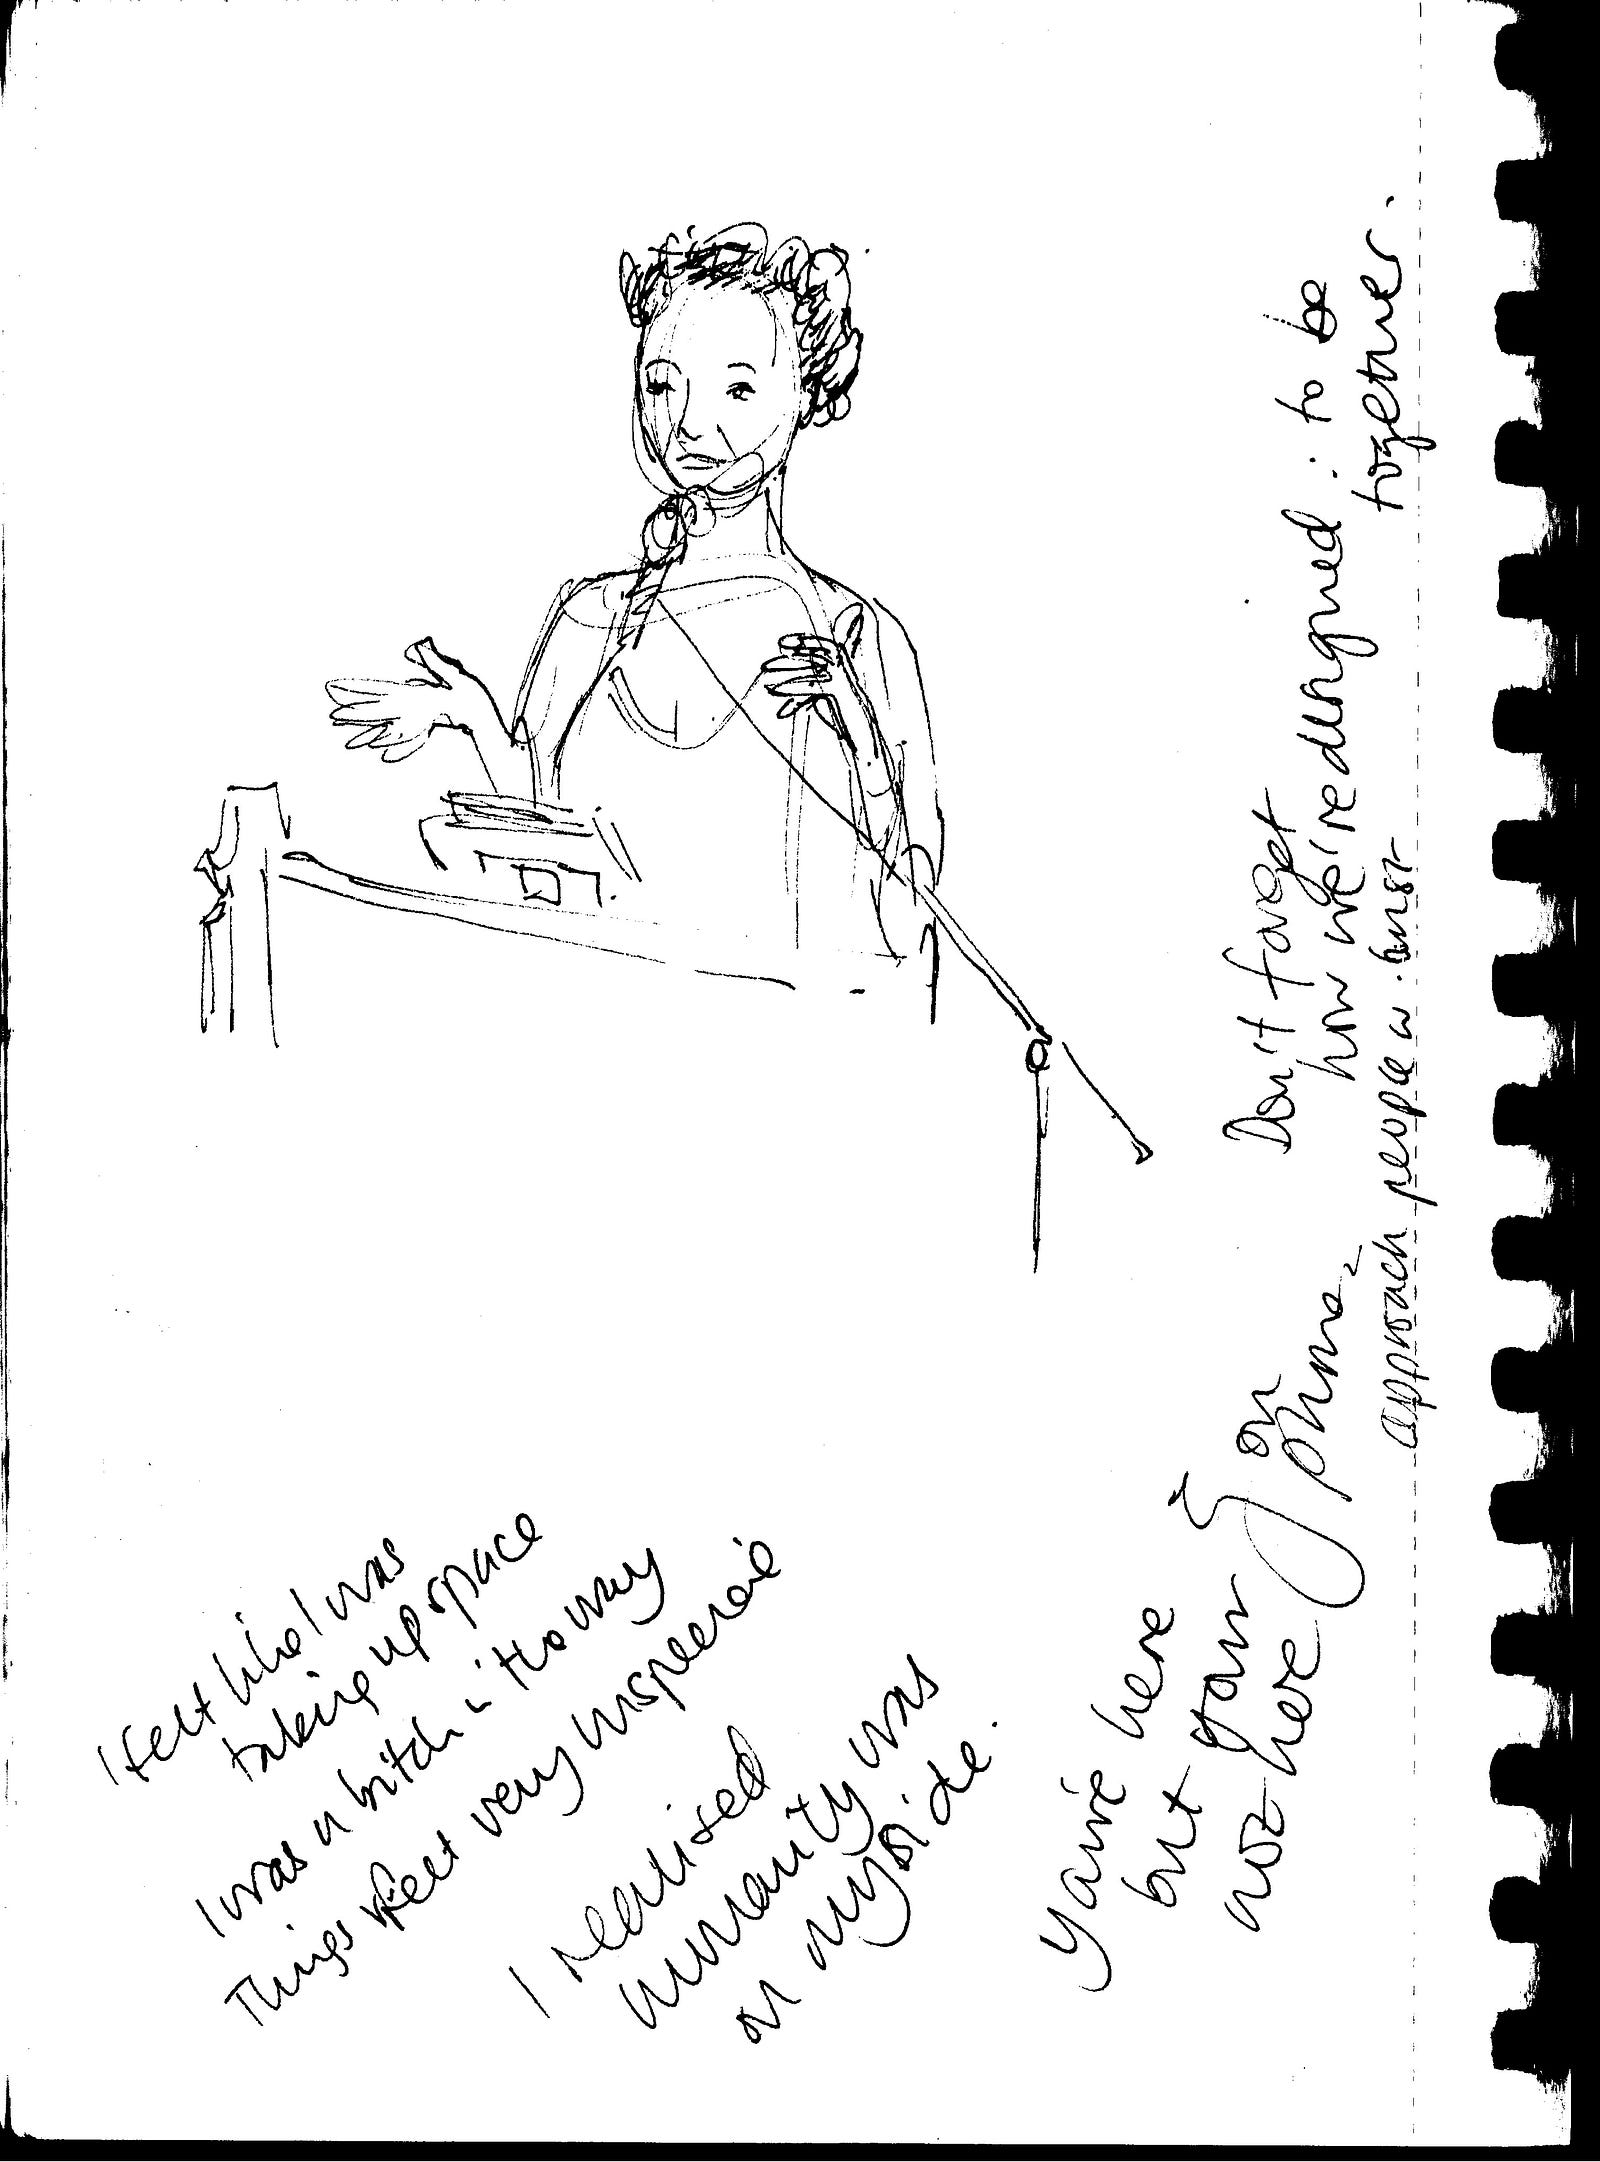 I felt like I was
taking up space
I was a bitch in the way
Things felt very
I realised
humanity was
on my side.
You're here
but your
not here
on
phone
Don't forget
how we're designed : to be
together.
approach people w.